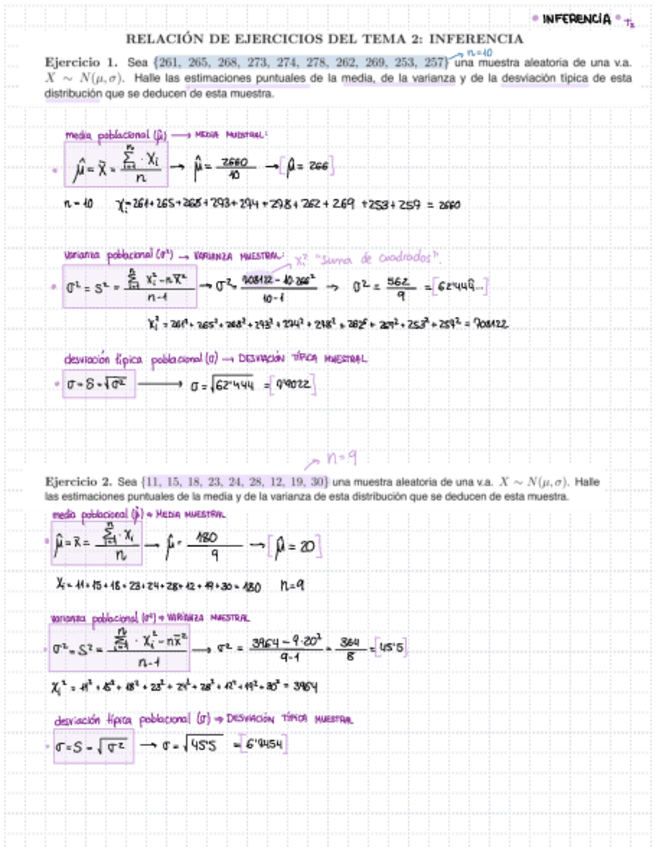 • INFERENCIA • T2
RELACIÓN DE EJERCICIOS DEL TEMA 2: INFERENCIA
→ n=10
Ejercicio 1. Sea {261, 265, 268, 273, 274, 278, 262, 269, 253, 257} una muestra aleatoria de una v.a.
X ∼ N(μ, σ). Halle las estimaciones puntuales de la media, de la varianza y de la desviación típica de esta
distribución que se deducen de esta muestra.
media poblacional (μ̂) → MEDIA MUESTRAL:
μ̂ = x̄ = Σ(i=1..n) · Xi / n → μ̂ = 2660 / 10 → [μ̂ = 266]
n = 10 Xi = 261+265+268+273+274+278+262+269+253+257 = 2660
Varianza poblacional (σ²) → VARIANZA MUESTRAL: Xi² "Suma de cuadrados".
σ² = S² = Σ(i=1..n) Xi² − nx̄² / n−1 → σ² = 708122 − 10·266² / 10−1 → σ² = 562 / 9 = [62'444̂...]
Xi² = 261² + 265² + 268² + 273² + 274² + 278² + 262² + 269² + 253² + 257² = 708122
desviación típica poblacional (σ) → DESVIACIÓN TÍPICA MUESTRAL
σ = S = √σ² → σ = √62'444 = [7'9022]
→ n=9
Ejercicio 2. Sea {11, 15, 18, 23, 24, 28, 12, 19, 30} una muestra aleatoria de una v.a. X ∼ N(μ, σ). Halle
las estimaciones puntuales de la media y de la varianza de esta distribución que se deducen de esta muestra.
media poblacional (μ̂) → MEDIA MUESTRAL
μ̂ = x̄ = Σ(i=1..n) · Xi / n → μ̂ = 180 / 9 → [μ̂ = 20]
Xi = 11+15+18+23+24+28+12+19+30 = 180 n=9
varianza poblacional (σ²) → VARIANZA MUESTRAL
σ² = S² = Σ(i=1..n) · Xi² − nx̄² / n−1 → σ² = 3964 − 9·20² / 9−1 = 364 / 8 = [45'5]
Xi² = 11² + 15² + 18² + 23² + 24² + 28² + 12² + 19² + 30² = 3964
desviación típica poblacional (σ) → DESVIACIÓN TÍPICA MUESTRAL
σ = S = √σ² → σ = √45'5 = [6'7454]